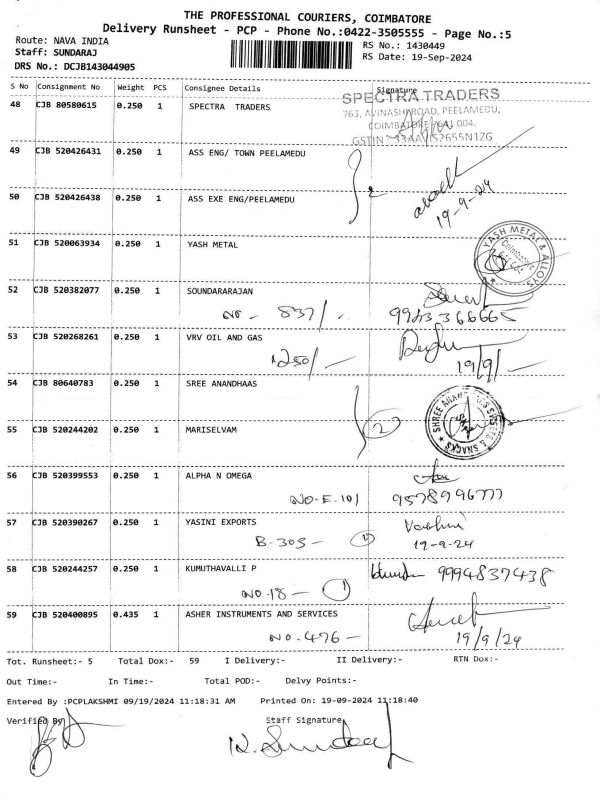 THE PROFESSIONAL COURIERS, COIMBATORE
Delivery Runsheet - PCP - Phone No.:0422-3505555 - Page No.:5
Route: NAVA INDIA
RS No.: 1430449
Staff: SUNDARAJ
RS Date: 19-Sep-2024
DRS No.: DCJB143044905
S No Consignment No Weight PCS Consignee Details Signature
48 CJB 80580615 0.250 1 SPECTRA TRADERS
SPECTRA TRADERS
763, AVINASHI ROAD, PEELAMEDU,
COIMBATORE - 641 004.
49 CJB 520426431 0.250 1 ASS ENG/ TOWN PEELAMEDU
50 CJB 520426438 0.250 1 ASS EXE ENG/PEELAMEDU
2
19-9-24
51 CJB 520063934 0.250 1 YASH METAL
YASH METAL & ALLOYS
Coimbatore
52 CJB 520382077 0.250 1 SOUNDARARAJAN
NO - 837/-
9943366665
53 CJB 520268261 0.250 1 VRV OIL AND GAS
1250/-
19/9/-
54 CJB 80640783 0.250 1 SREE ANANDHAAS
2
SHREE ANANDHAAS SWEETS & SNACKS
55 CJB 520244202 0.250 1 MARISELVAM
56 CJB 520399553 0.250 1 ALPHA N OMEGA
NO-E.101
9578996777
57 CJB 520390267 0.250 1 YASINI EXPORTS
B-305-
19-9-24
58 CJB 520244257 0.250 1 KUMUTHAVALLI P
NO-18-
1
9994837438
59 CJB 520400895 0.435 1 ASHER INSTRUMENTS AND SERVICES
NO.476-
19/9/24
Tot. Runsheet:- 5 Total Dox:- 59 I Delivery:- II Delivery:- RTN Dox:-
Out Time:- In Time:- Total POD:- Delvy Points:-
Entered By :PCPLAKSHMI 09/19/2024 11:18:31 AM Printed On: 19-09-2024 11:18:40
Verified By
Staff Signature
K. Sundaraj